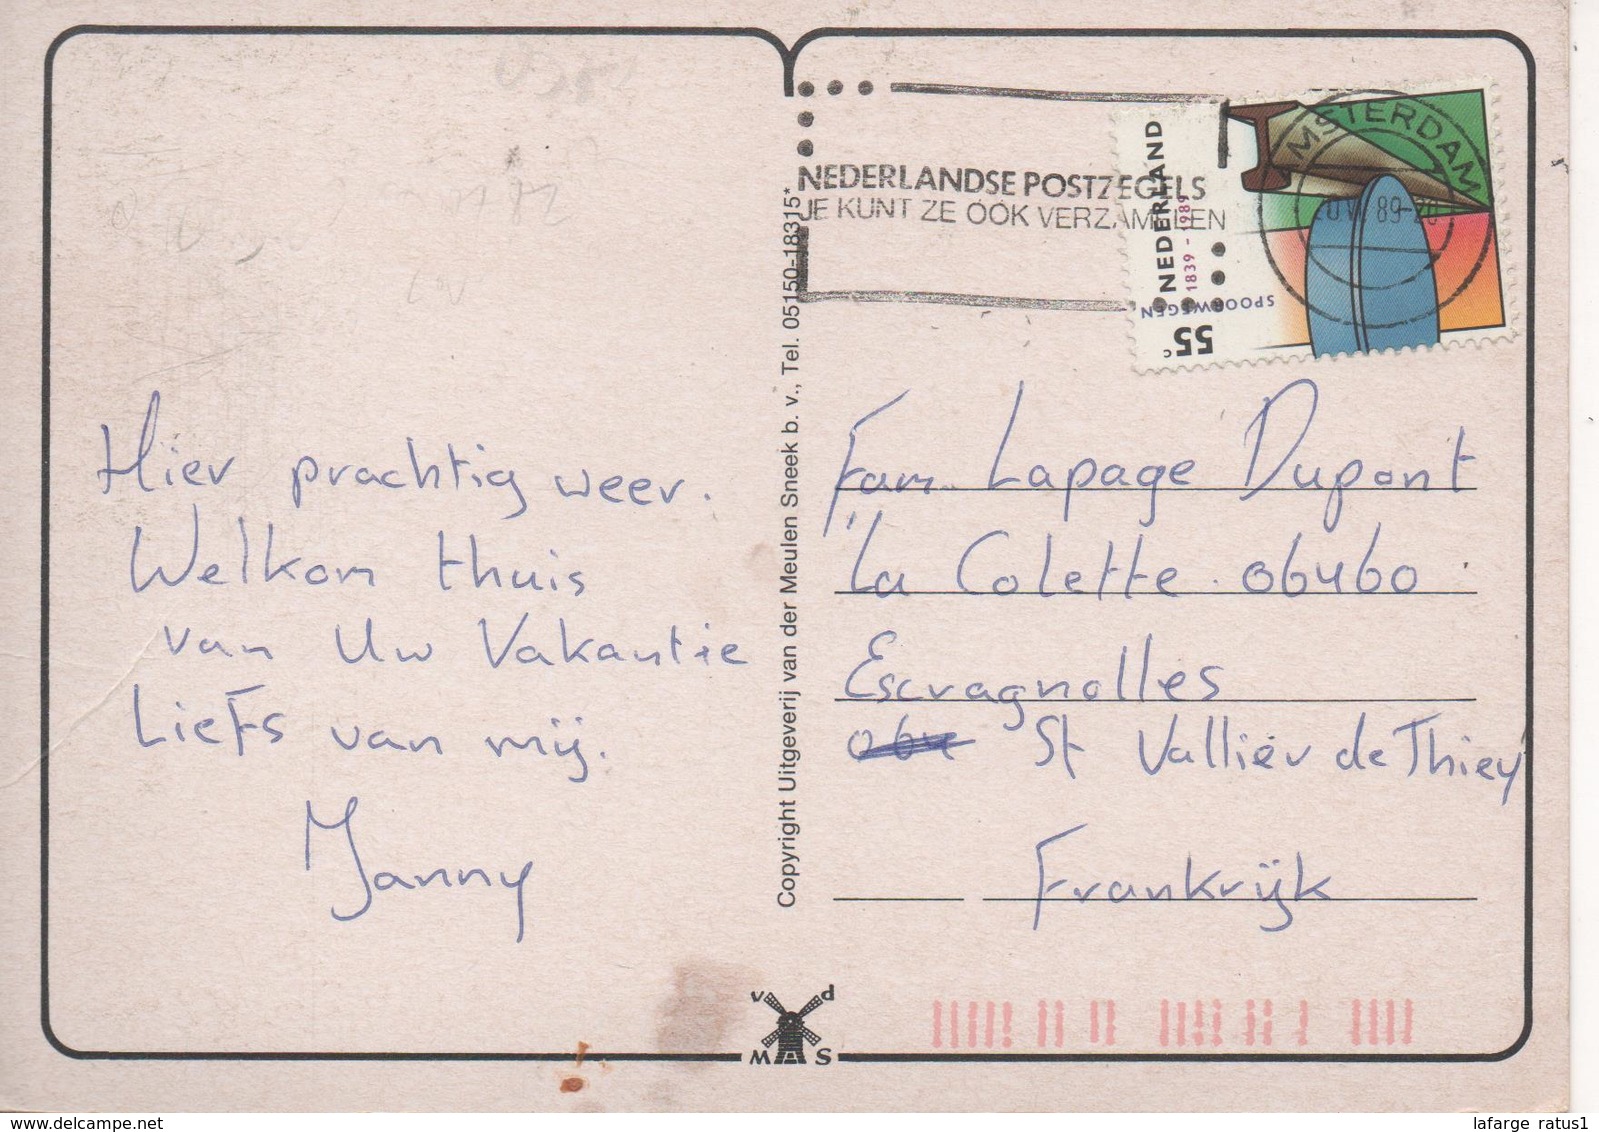 NEDERLANDSE POSTZEGELS
JE KUNT ZE OOK VERZAMELEN
AMSTERDAM
NEDERLAND
1839 - 1989
SPOORWEGEN
55 c
Hier prachtig weer.
Welkom thuis
van Uw Vakantie
Liefs van mij.
Janny
Copyright Uitgeverij van der Meulen Sneek b. v., Tel. 05150-18315*
Fam. Lapage Dupont
"La Colette 06460
Escragnolles
St Vallier de Thiey
Frankrijk
v d
M S
lafarge ratus1